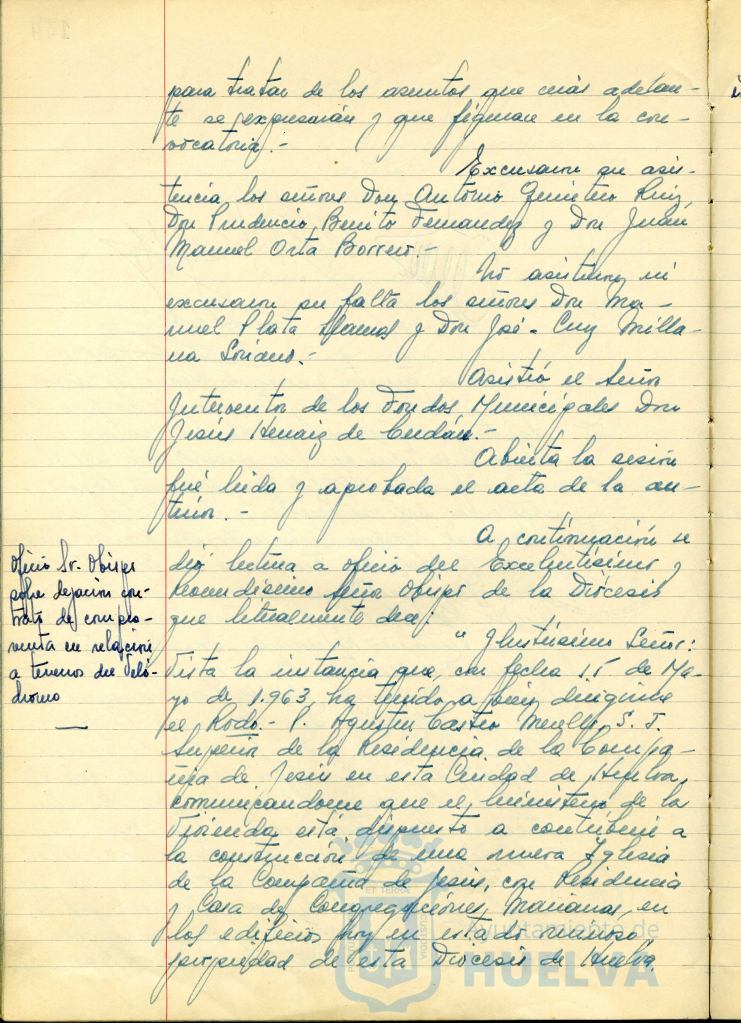 para tratar de los asuntos que más adelan-
te se expresarán y que figuran en la con-
vocatoria.-
Excusaron su asis-
tencia los señores Don Antonio Quintero Ruiz,
Don Prudencio Benito Fernandez y Don Juan
Manuel Orta Borrero.-
No asistieron ni
excusaron su falta los señores Don Ma-
nuel Plata Llamas y Don José-Cruz Milla-
na Soriano.-
Asistió el Señor
Interventor de los Fondos Municipales Don
Jesús de
Abierta la sesión
fué leida y aprobada el acta de la an-
terior.-
A continuación se
dió lectura a oficio del Excelentísimo y
Reverendísimo Señor Obispo de la Diócesis
que literalmente dice:
Oficio Sr. Obispo
sobre dejación con-
trato de compra-
venta en relación
a terrenos del Veló-
dromo
" Ilustrísimo Señor:
Vista la instancia que, con fecha 15 de Ma-
yo de 1.963, ha tenido a bien dirigirme
el Rvdo.- P. Agustín Castro S. J.
Superior de la Residencia de la Compa-
ñía de Jesús en esta Ciudad de Huelva,
comunicandome que el Ministerio de la
Vivienda está dispuesto a contribuir a
la construcción de una nueva Iglesia
de la Compañía de Jesús, con Residencia
y Casa de Congregaciones Marianas, en
los edificios hoy en estado ruinoso
propiedad de esta Diócesis de Huelva,
Ayuntamiento de
HUELVA